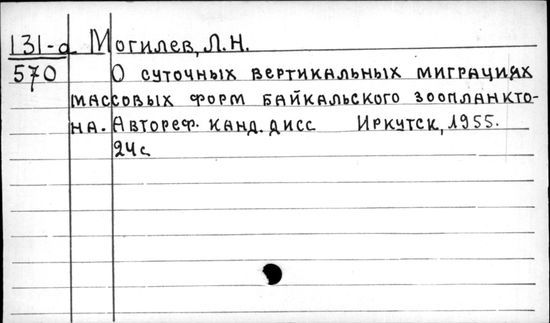 131-а Могилев, Л.Н.
570 О суточных вертикальных миграциях
массовых форм байкальского зоопланкто-
на. Автореф. канд. дисс Иркутск, 1955.
24с